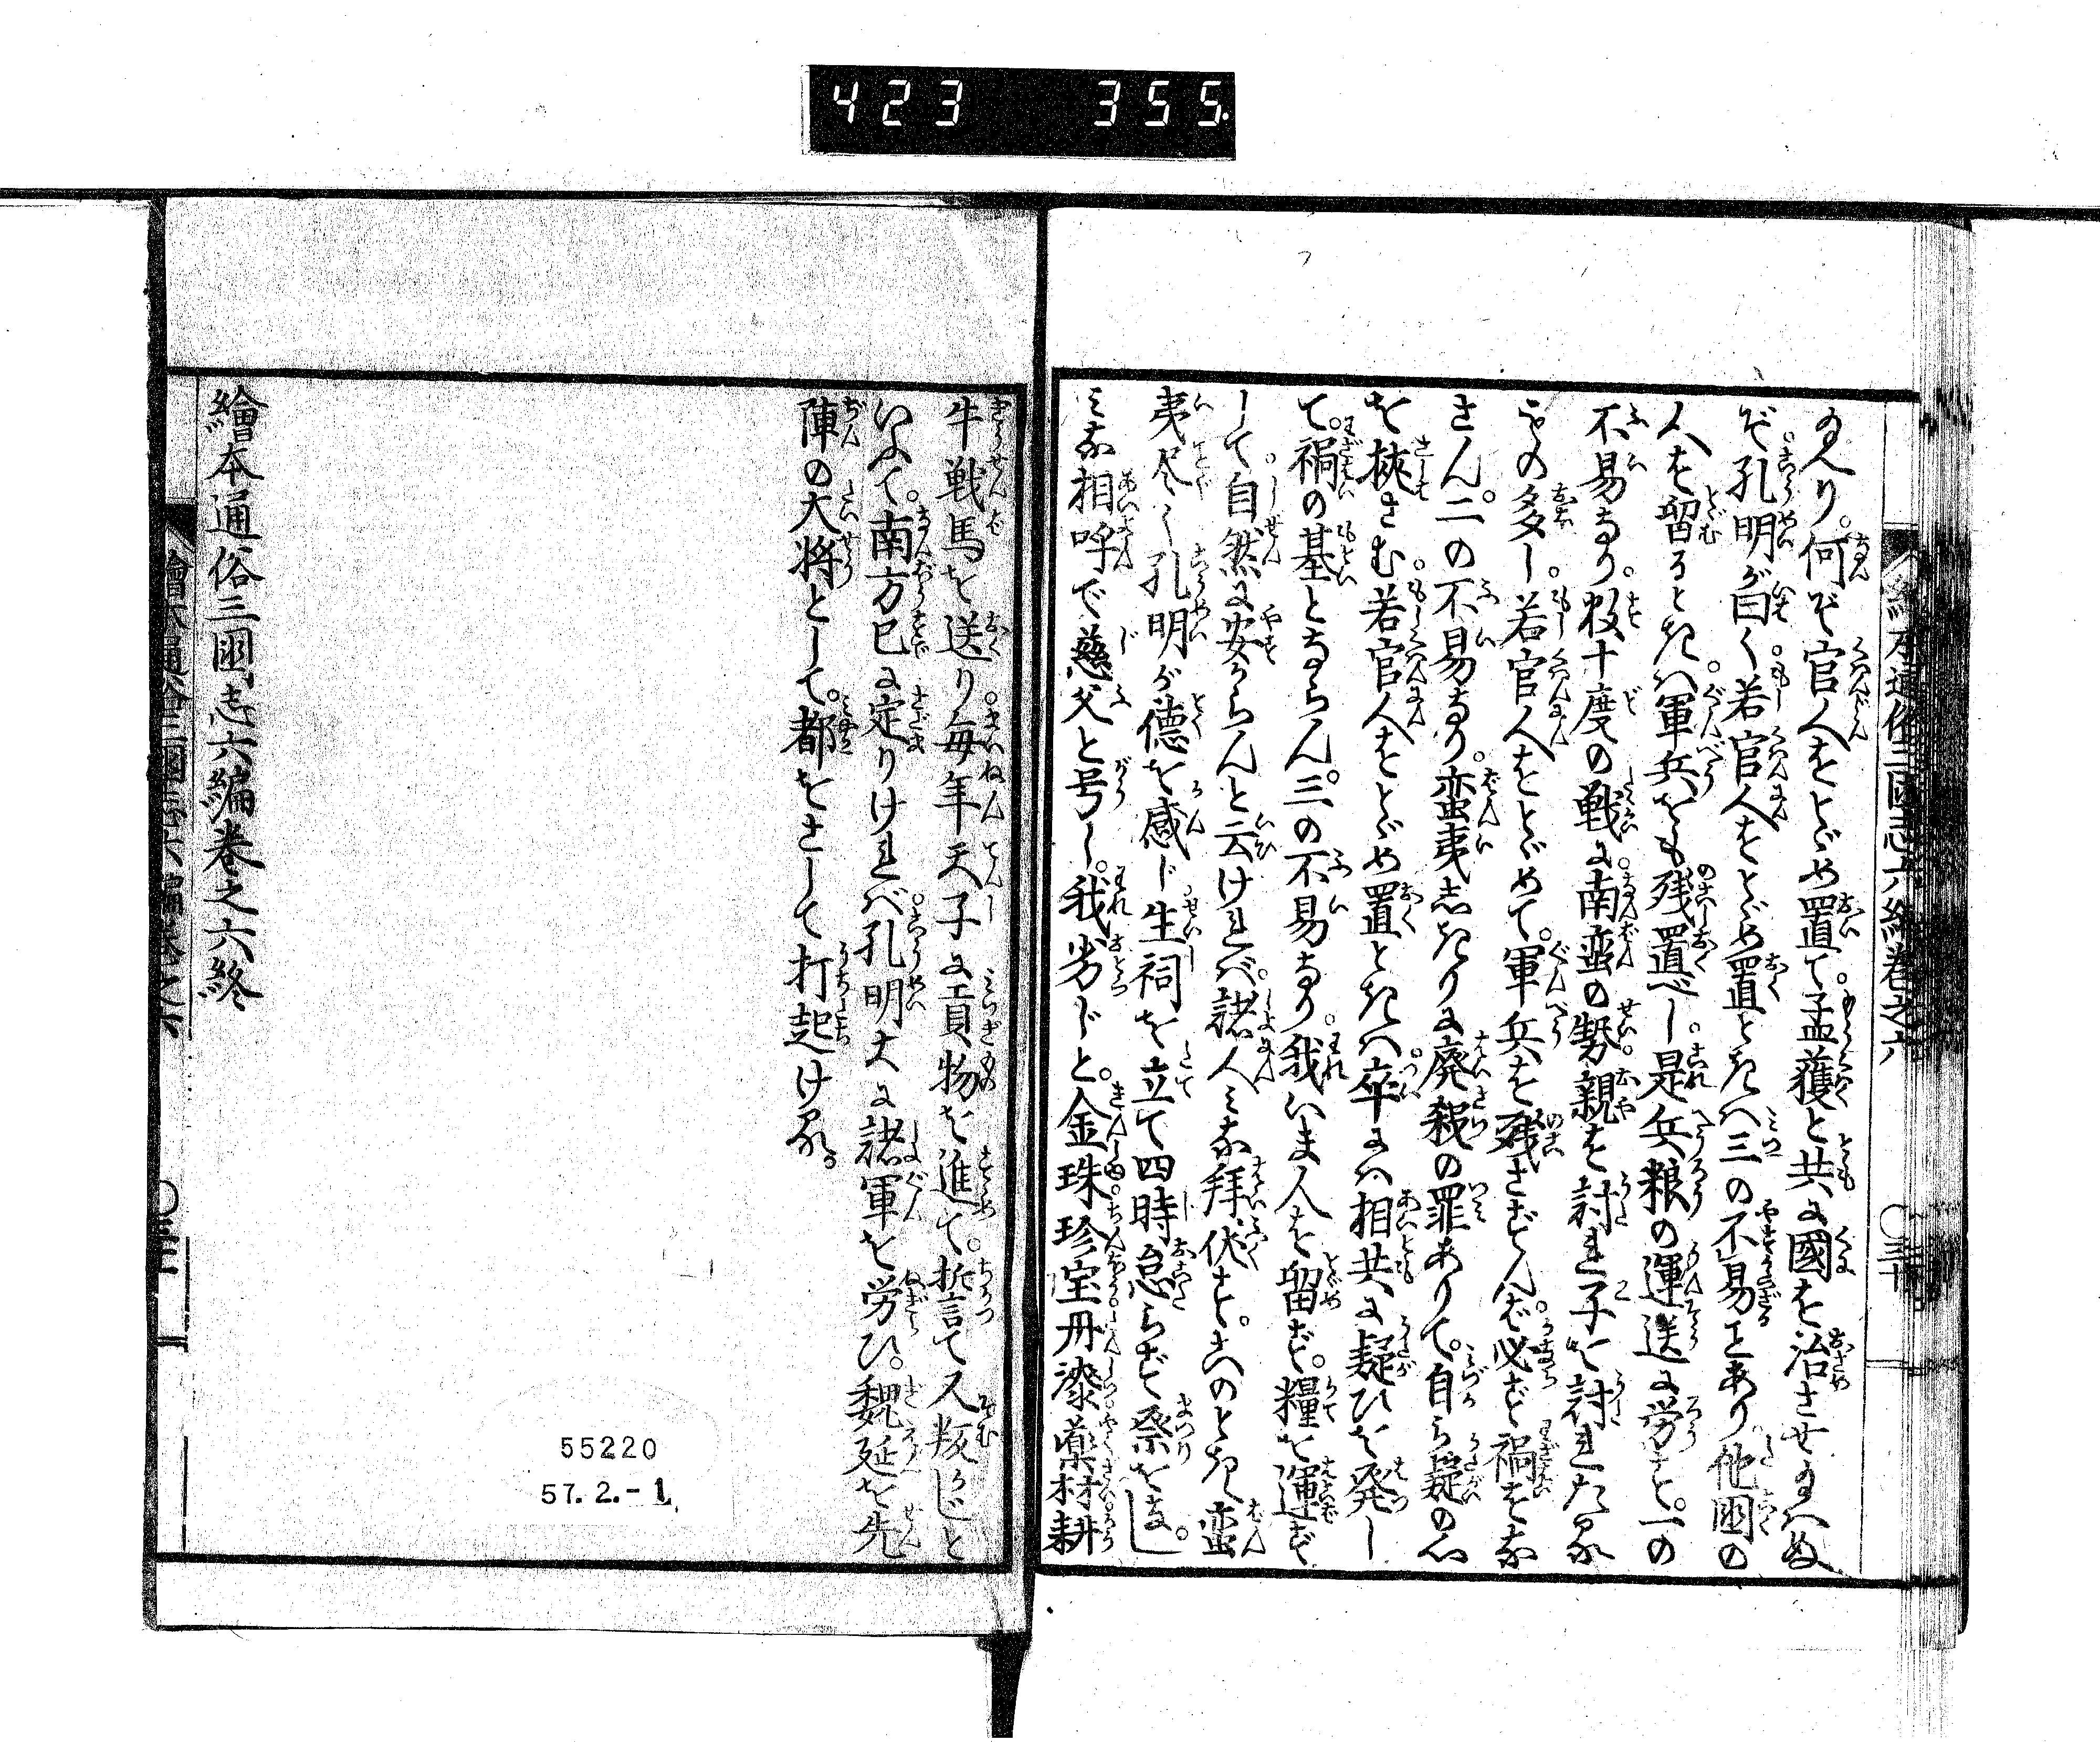 423 355.
繪本通俗三國志六編卷之六 〇三十
給へり。何ぞ官人をとゞめ置て。孟獲と共に國を治させ給はぬ
ぞ。孔明が曰く。若官人をとゞめ置ときハ三の不易ことあり。他國の
人を留るときハ。軍兵をも残置べし。是兵粮の運送に労す。一の
不易なり。数十度の戦に。南蛮の勢。親を討れ子を討れたる
ものの多し。若官人をとゞめて。軍兵を残さずんば。必ず禍をな
さん。二の不易なり。蛮夷しきりに廃殺の罪ありて。自ら疑の心
を挾さむ。若官人をとゞめ置ときハ。卒にハ相共に疑ひを発し
て。禍の基とならん。三の不易なり。我いま人を留ず。糧を運ず
して。自然に安からんと云けれバ。諸人ミな拜伏す。このとき蛮
夷尽く孔明が德を感じ。生祠を立て四時怠らず祭をなし。
ミな相呼で慈父と号し。我劣じと。金珠。珍宝。丹漆。藥材。耕
牛戦馬を送り。毎年天子に貢物を進て。誓て又叛かじと
いふて。南方已に定りけれバ。孔明大に諸軍を労ひ。魏延を先
陣の大将として。都をさして打起ける。
繪本通俗三國志六編巻之六終
繪本通俗三國志六編巻之六 〇三十一
55220
57.2.-1